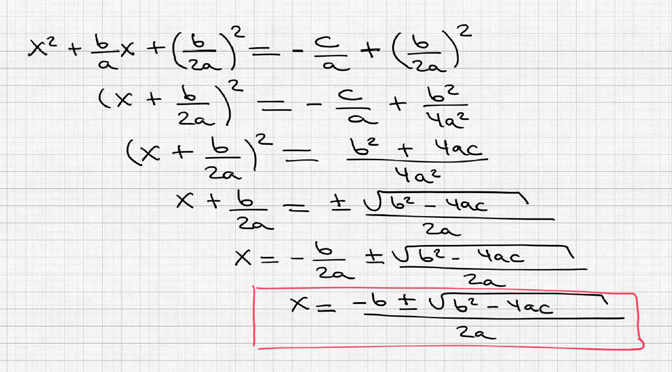 x² + b/a x + (b/2a)² = - c/a + (b/2a)²
(x + b/2a)² = - c/a + b²/4a²
(x + b/2a)² = b² + 4ac/4a²
x + b/2a = ± √b² - 4ac/2a
x = - b/2a ± √b² - 4ac/2a
x = -b ± √b² - 4ac/2a